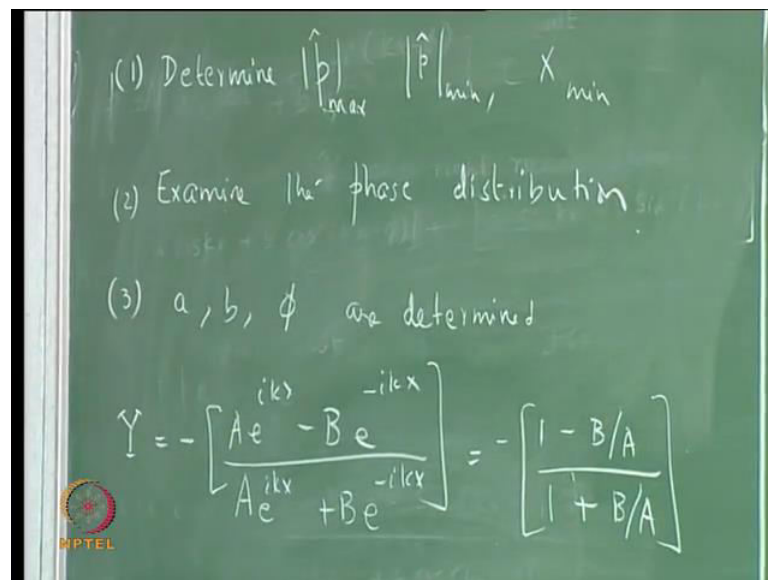 (1) Determine |p̂|max |p̂|min, Xmin
(2) Examine the phase distribution
(3) a, b, ϕ are determined
Y = -[(Ae^{ikx} - Be^{-ikx})/(Ae^{ikx} + Be^{-ikx})] = -[(1 - B/A)/(1 + B/A)]
NPTEL